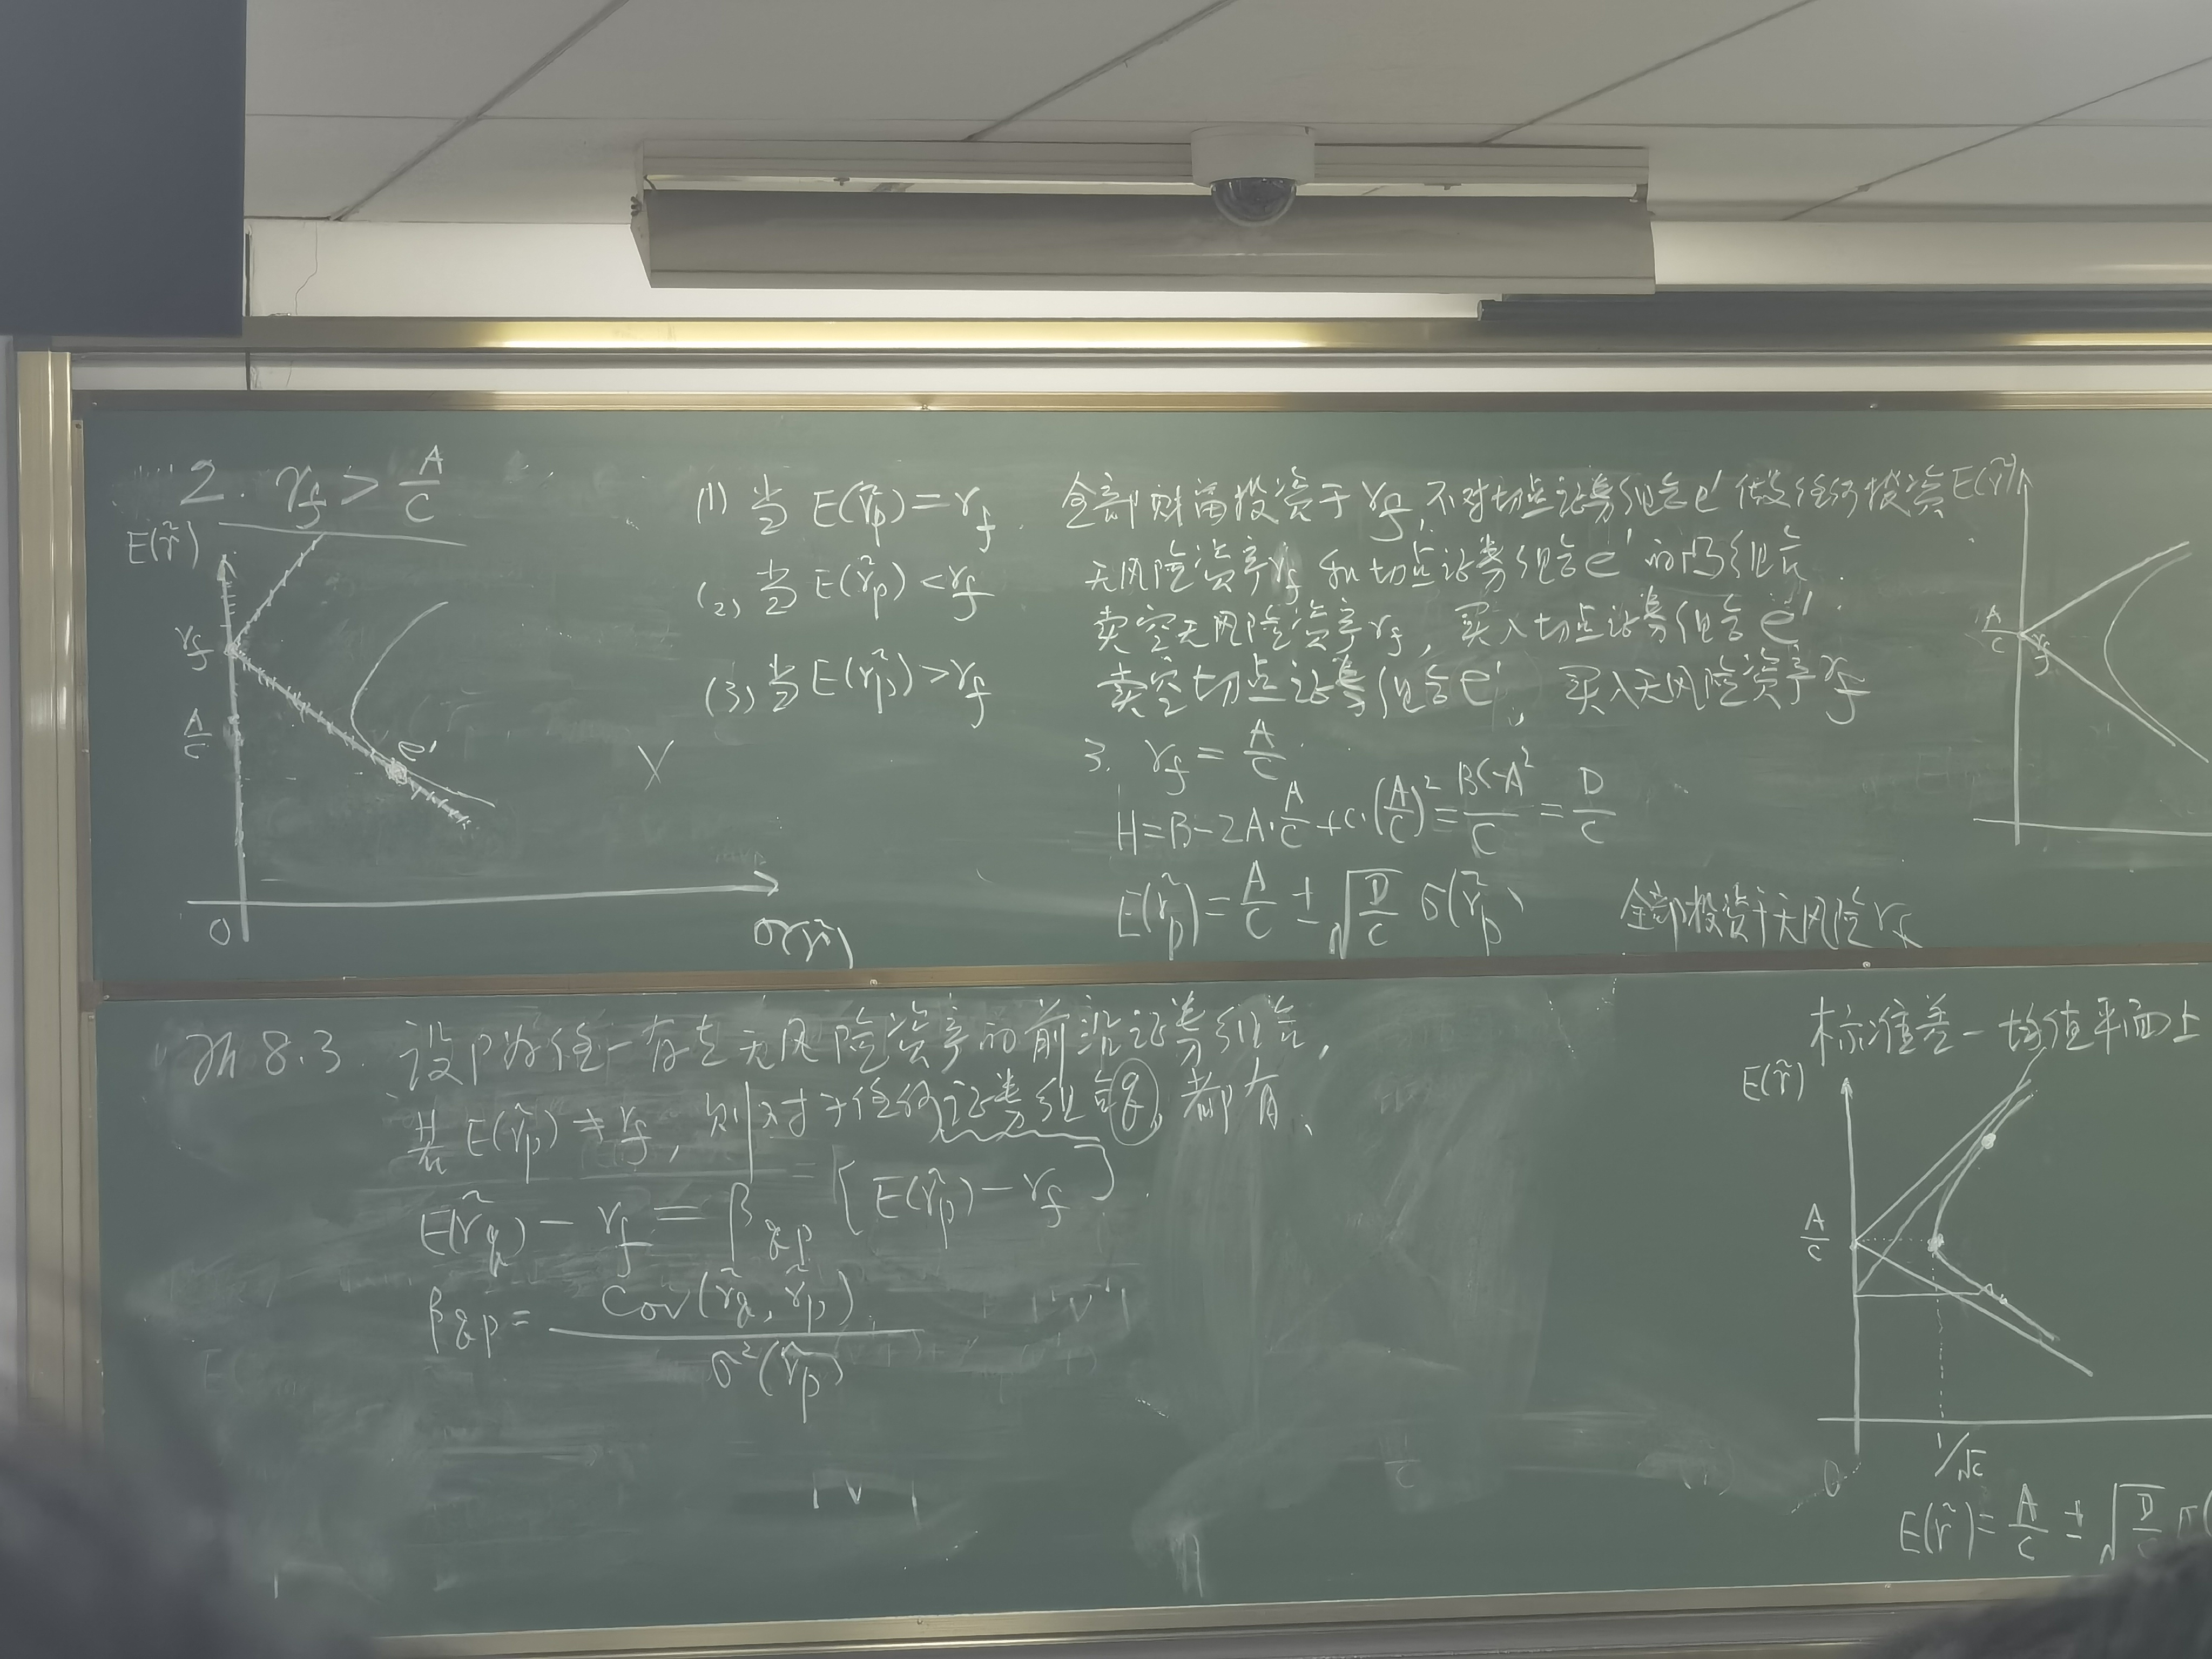 2. r_f > A/C
E(r̃)
r_f
A/C
e'
0
σ(r̃)
(1) 当 E(r̃_p) = r_f. 全部财富投资于 r_f, 不对切点证券组合e'做任何投资
(2) 当 E(r̃_p) < r_f 无风险资产r_f 和切点证券组合e'的凸组合.
卖空无风险资产r_f, 买入切点证券组合e'.
(3) 当 E(r̃_p) > r_f 卖空切点证券组合e', 买入无风险资产r_f
3. r_f = A/C.
H = B - 2A·A/C + C·(A/C)² = BC-A²/C = D/C
E(r̃_p) = A/C ± √(D/C) σ(r̃_p)
全部投资于无风险r_f
E(r̃)
A/C
r_f
8.3. 设p为任一存在无风险资产的前沿证券组合,
若 E(r̃_p) ≠ r_f, 则对于任何证券组合q, 都有、
E(r̃_q) - r_f = β_qp [E(r̃_p) - r_f].
β_qp = Cov(r̃_q, r̃_p) / σ²(r̃_p)
标准差-均值平面上
E(r̃)
A/C
0
1/√C
E(r̃) = A/C ± √(D/C) σ(